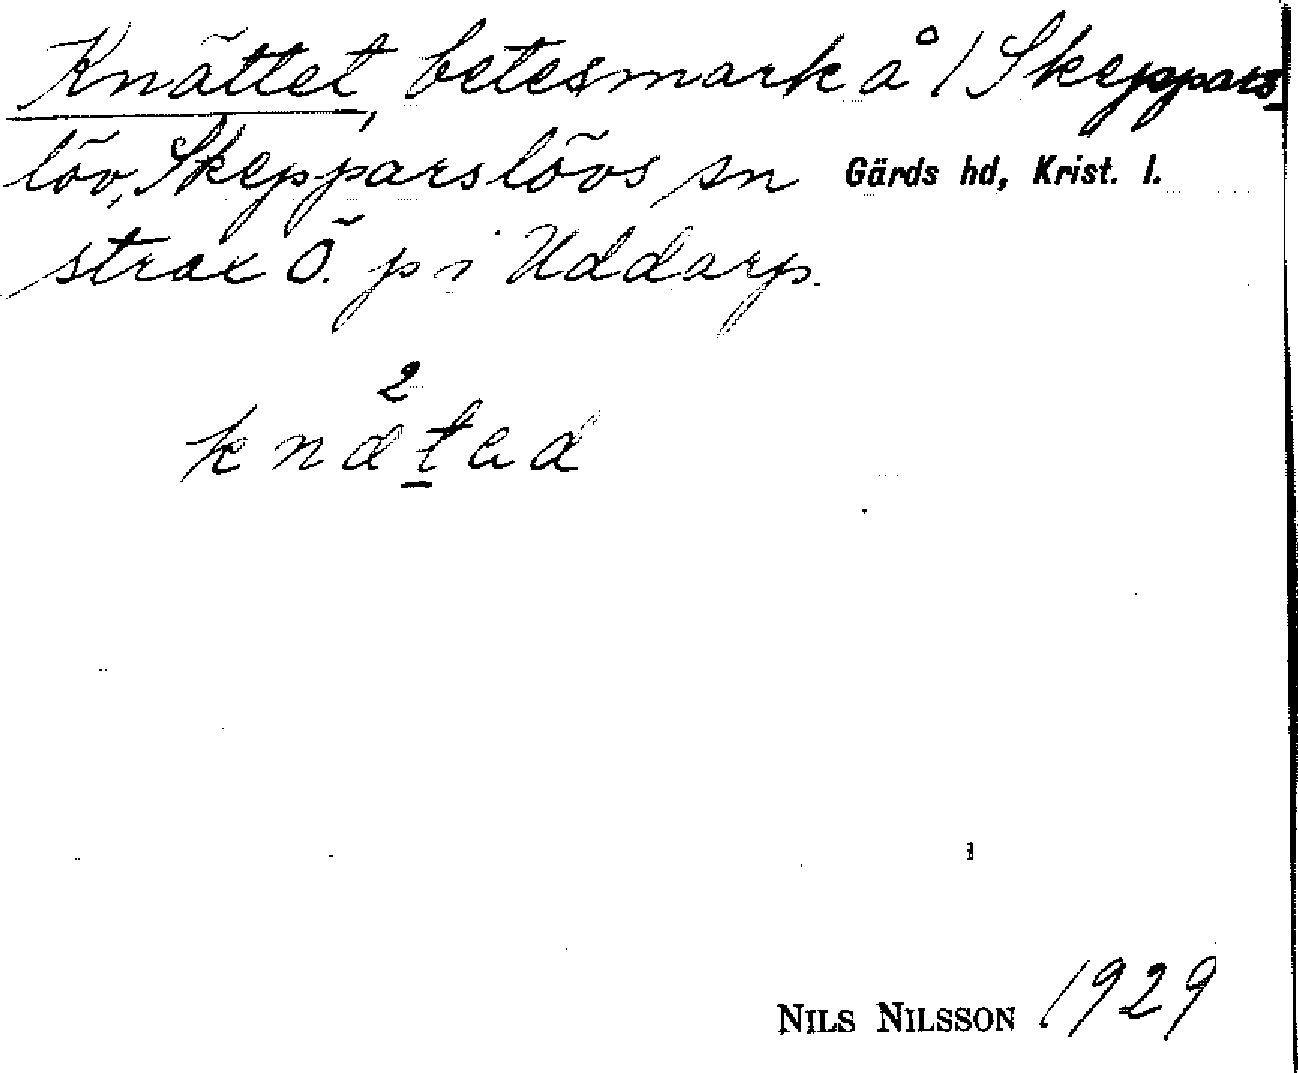 Knättet, betesmark å 1 Skeppars-
löv, Skepparslövs sn Gärds hd, Krist. l.
strax Ö. p i Uddarp.
2
knätad
NILS NILSSON 1929